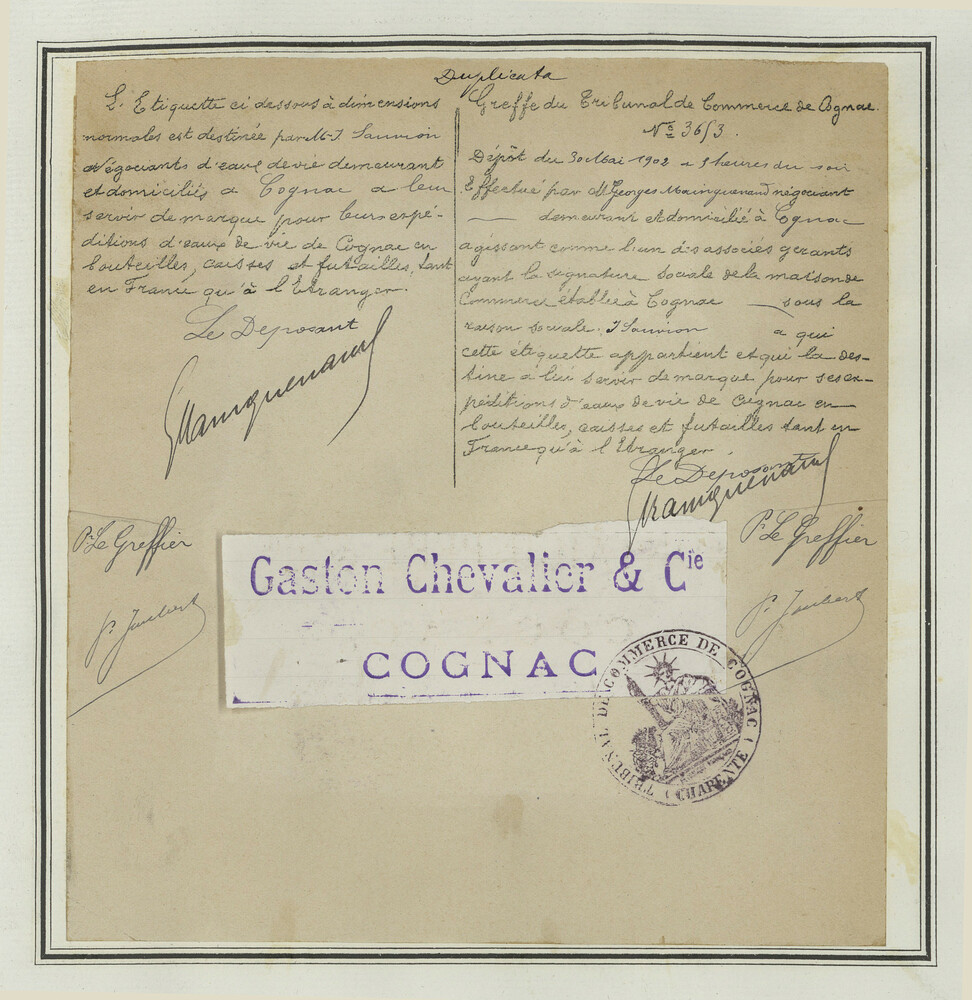 Duplicata
L'Etiquette ci dessous à dimensions
normales est destinée par M. J Sauvion
Négociants d'eaux de vie demeurant
et domiciliés a Cognac a leur
servir de marque pour leurs expé-
ditions d'eaux de vie de Cognac en
bouteilles, caisses et futailles, tant
en France qu'à l'Etranger.
Le Deposant
GMainguenaud
Greffe du Tribunal de Commerce de Cognac.
Nº 3653.
Dépôt du 30 Mai 1902 a heures du soir
Effectué par M Georges Mainguenaud négociant
demeurant et domicilié à Cognac
agissant comme l'un des associés gerants
ayant la signature sociale de la maison de
Commerce établie à Cognac sous la
raison sociale. J Sauvion a qui
cette étiquette appartient et qui la des-
tine à lui servir de marque pour ses ex-
péditions d'eaux de vie de Cognac en
bouteilles, caisses et futailles tant en
France qu'à l'Etranger.
Le Deposant
GMainguenaud
Pr Le Greffier
P. Joubert
Pr Le Greffier
P. Joubert
Gaston Chevalier & Cie
COGNAC
TRIBUNAL DE COMMERCE DE COGNAC
(CHARENTE)